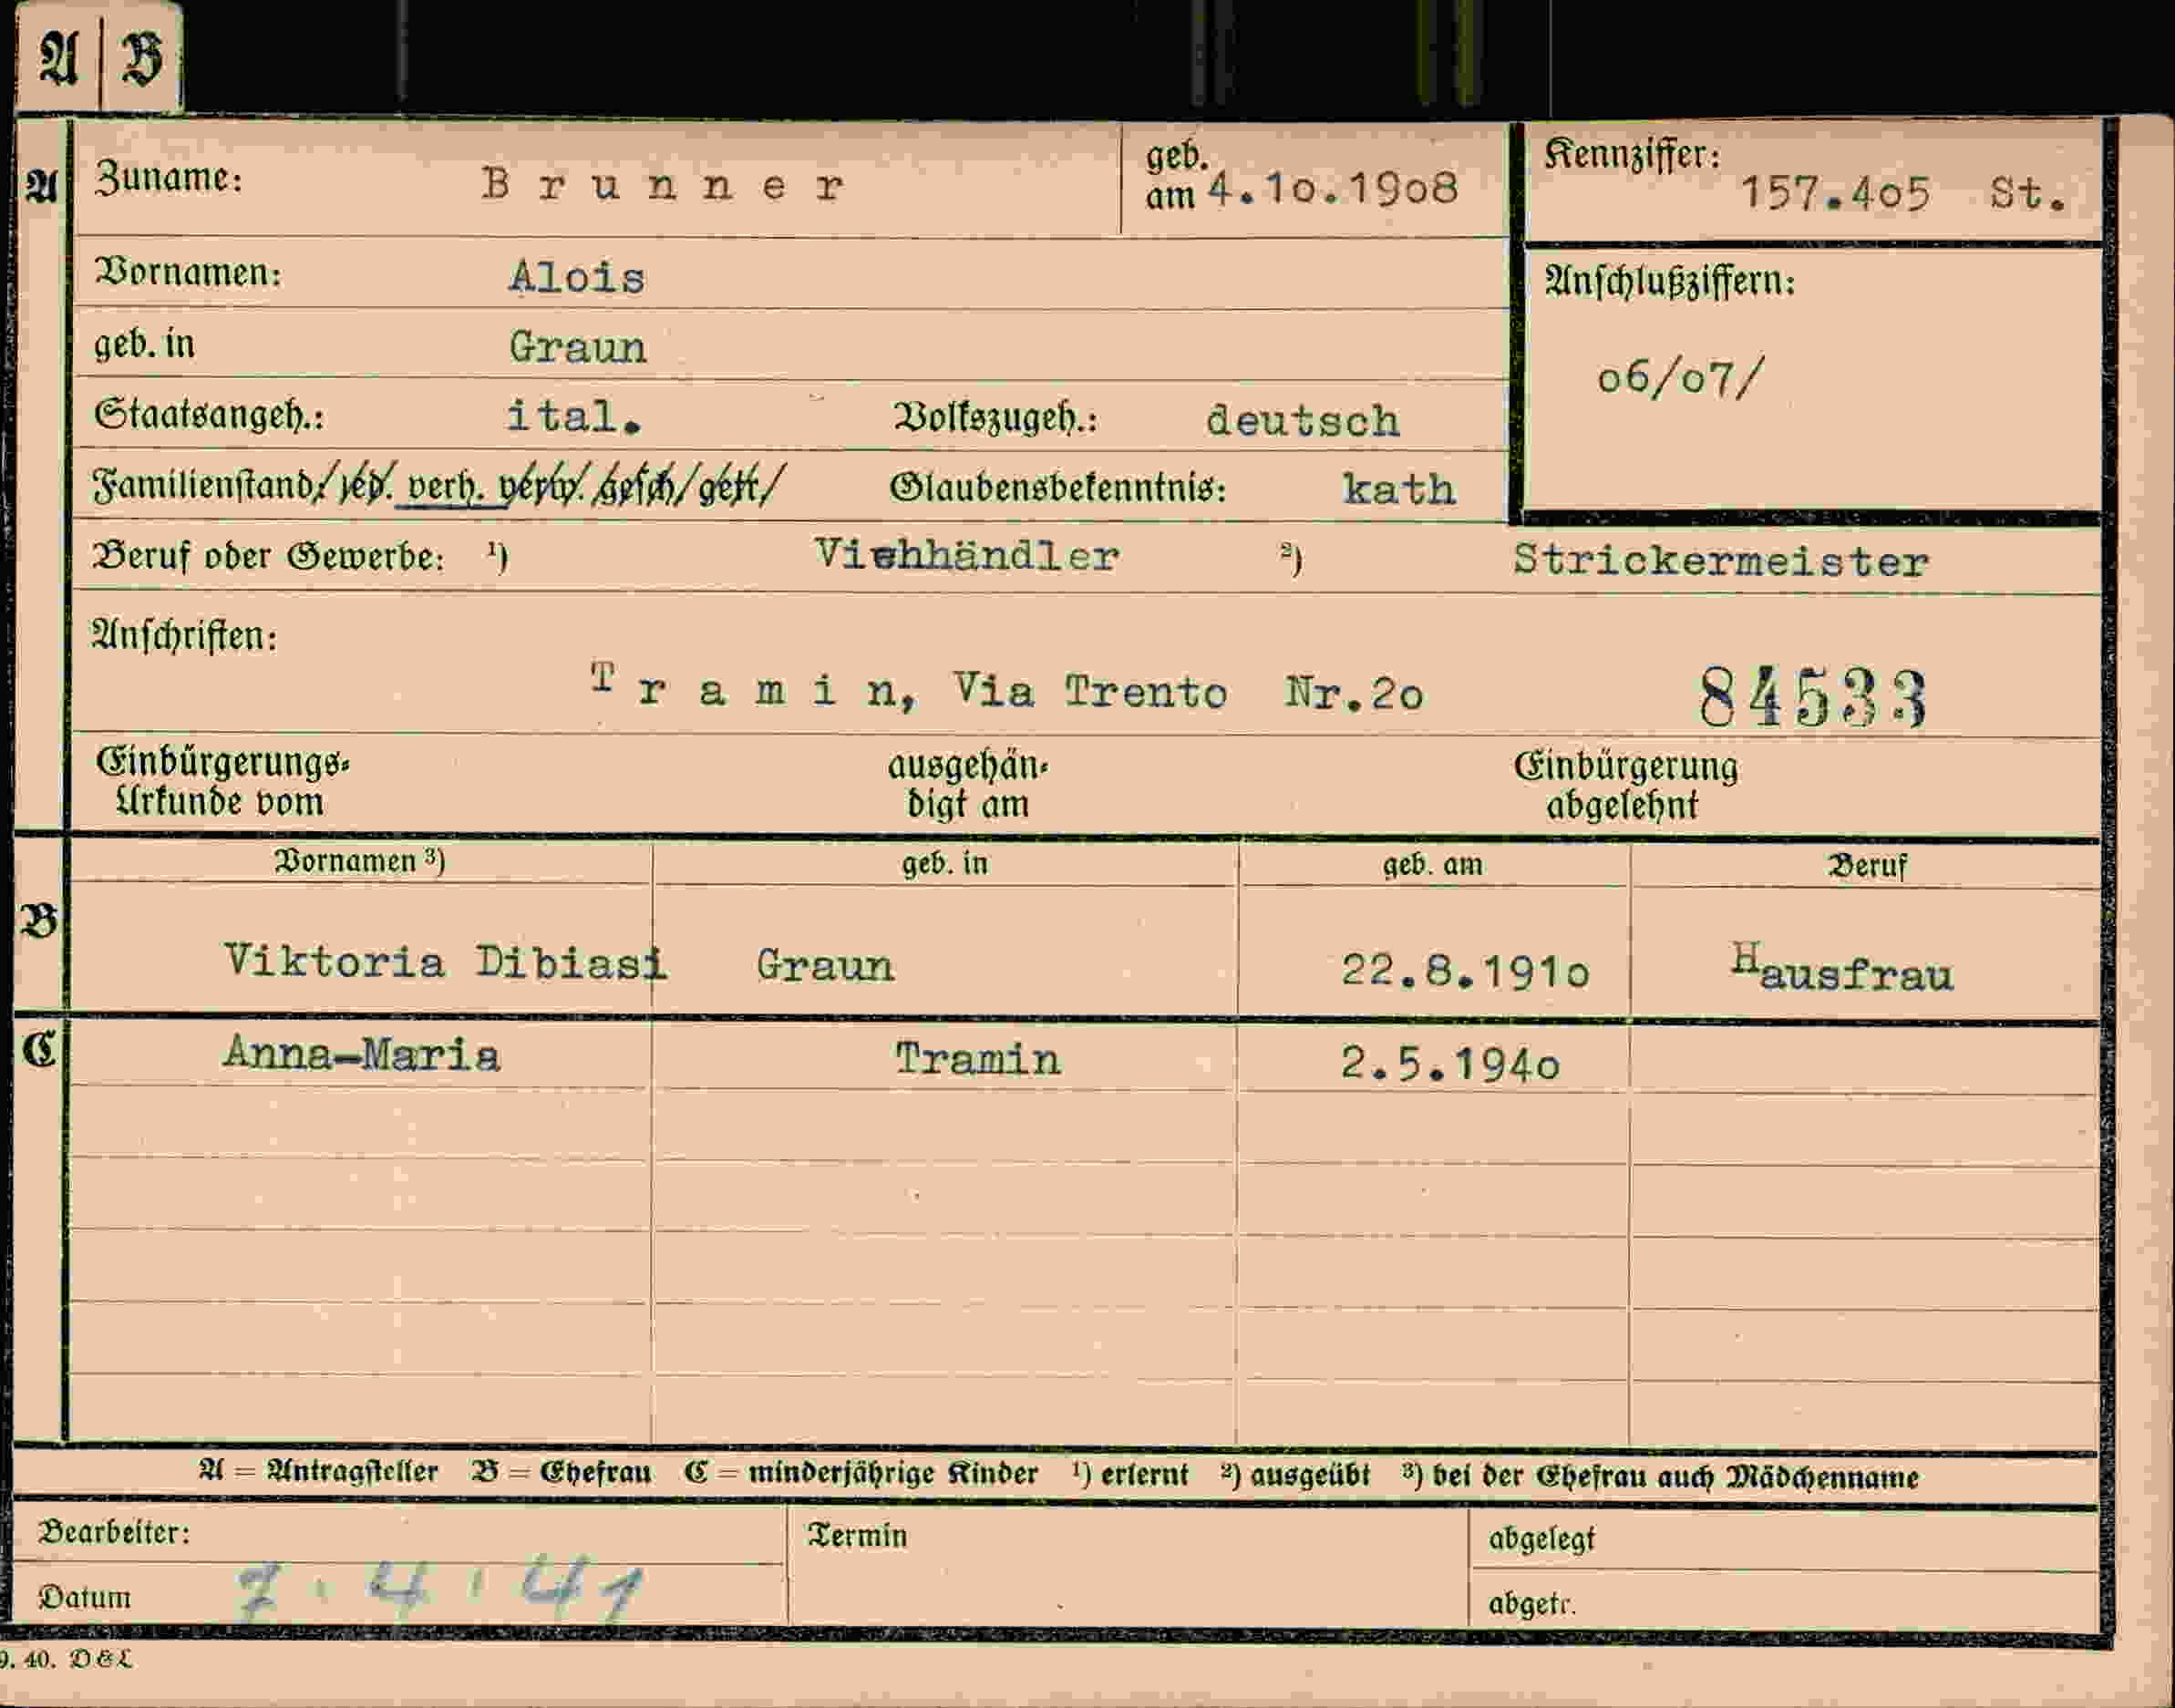 A | B
A Zuname: Brunner geb. am 4.10.1908 Kennziffer: 157.405 St.
Vornamen: Alois Anschlußziffern:
geb. in Graun 06/07/
Staatsangeh.: ital. Volkszugeh.: deutsch
Familienstand: led. verh. verw. gesch. getr. Glaubensbekenntnis: kath
Beruf oder Gewerbe: ¹) Viehhändler ²) Strickermeister
Anschriften:
Tramin, Via Trento Nr.20 84533
Einbürgerungs- ausgehän- Einbürgerung
Urkunde vom digt am abgelehnt
Vornamen ³) geb. in geb. am Beruf
B
Viktoria Dibiasi Graun 22.8.1910 Hausfrau
C Anna-Maria Tramin 2.5.1940
A = Antragsteller B = Ehefrau C = minderjährige Kinder ¹) erlernt ²) ausgeübt ³) bei der Ehefrau auch Mädchenname
Bearbeiter: Termin abgelegt
Datum 7.4.41 abgetr.
9. 40. D&L